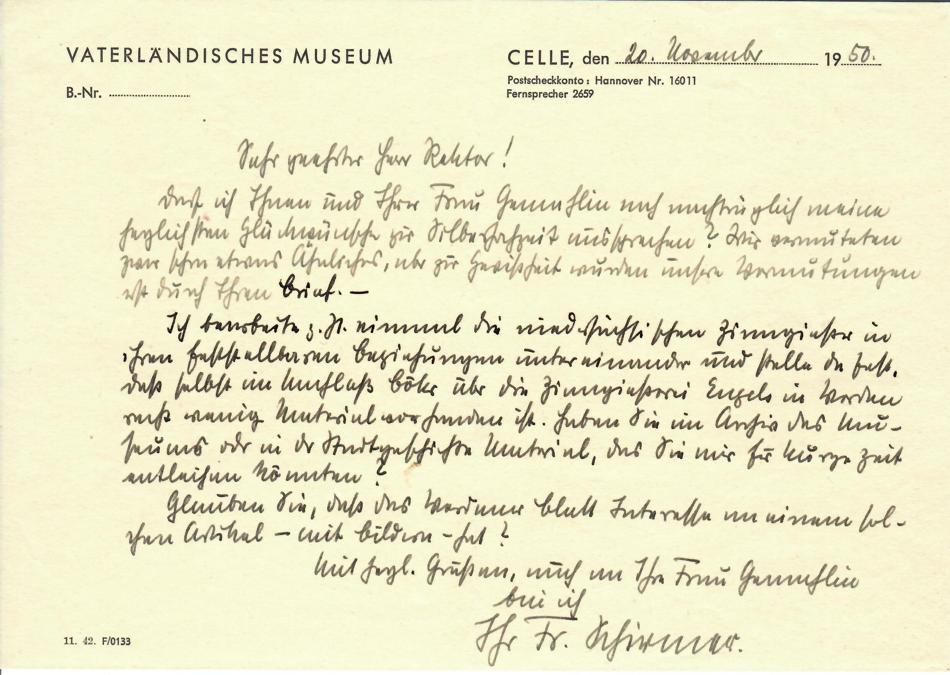 VATERLÄNDISCHES MUSEUM
CELLE, den 20. November 1950.
B.-Nr.
Postscheckkonto: Hannover Nr. 16011
Fernsprecher 2659
Sehr geehrter Herr Rektor!
Darf ich Ihnen und Ihrer Frau Gemahlin noch nachträglich meine
herzlichsten Glückwünsche zur Silberhochzeit aussprechen? Wir vermuteten
zwar schon etwas Ähnliches, aber zur Gewißheit wurden unsere Vermutungen
erst durch Ihren Brief. —
Ich bearbeite z. Zt. einmal die niedersächsischen Zinngießer in
ihren feststellbaren Beziehungen untereinander und stelle da fest,
daß selbst im Nachlaß Böker über die Zinngießerei Engels in Verden
recht wenig Material vorhanden ist. Haben Sie im Archiv des Mu-
seums oder in der Stadtgeschichte Material, das Sie mir für kurze Zeit
entleihen könnten?
Glauben Sie, daß das Verdener Blatt Interesse an einem sol-
chen Artikel – mit Bildern – hat?
Mit herzl. Grüßen, auch an Ihre Frau Gemahlin
bin ich
Ihr Fr. Schirmer.
11. 42. F/0133